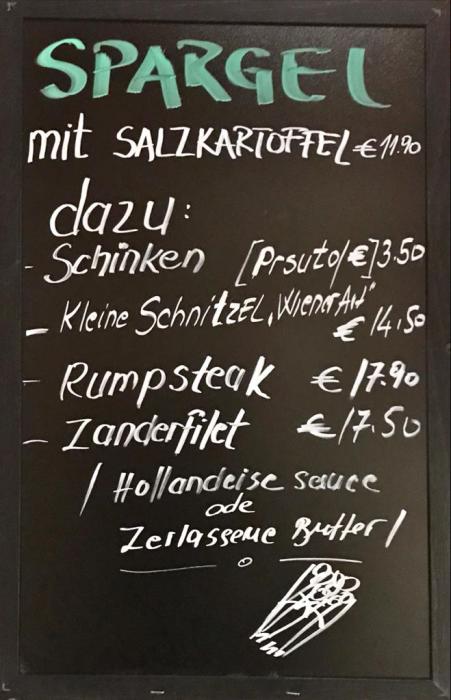 SPARGEL
mit SALZKARTOFFEL €11.90
dazu:
- Schinken [Prsuto/€]3.50
- Kleine SchnitzEL „Wiener Art"
€ 14.50
- Rumpsteak € 17.90
- Zanderfilet € 17.50
/ Hollandeise sauce
ode
Zerlassene Butter /